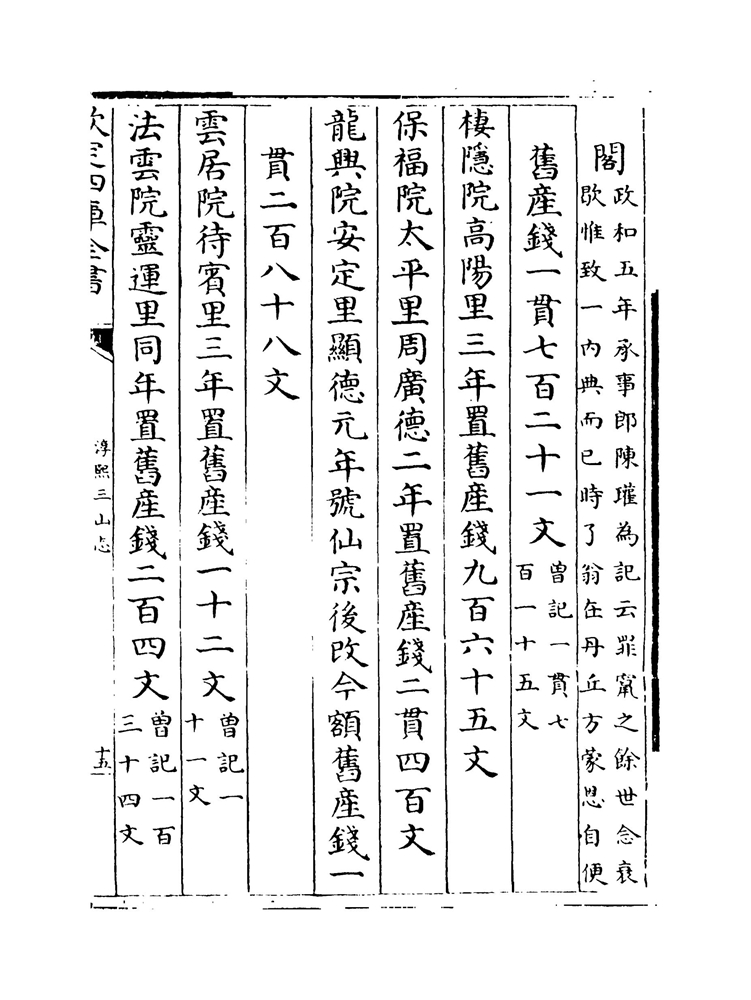 閣政和五年承事郎陳瓘為記云罪竄之餘世念衰
歇惟致一内典而已時了翁在丹丘方蒙恩自便
舊產錢一貫七百二十一文曾記一貫七
百一十五文
棲隱院高陽里三年置舊產錢九百六十五文
保福院太平里周廣德二年置舊產錢二貫四百文
龍興院安定里顯德元年號仙宗後改今額舊產錢一
貫二百八十八文
雲居院待賓里三年置舊產錢一十二文曾記一
十一文
法雲院靈運里同年置舊產錢二百四文曾記一百
三十四文
欽定四庫全書
淳熙三山志
十五